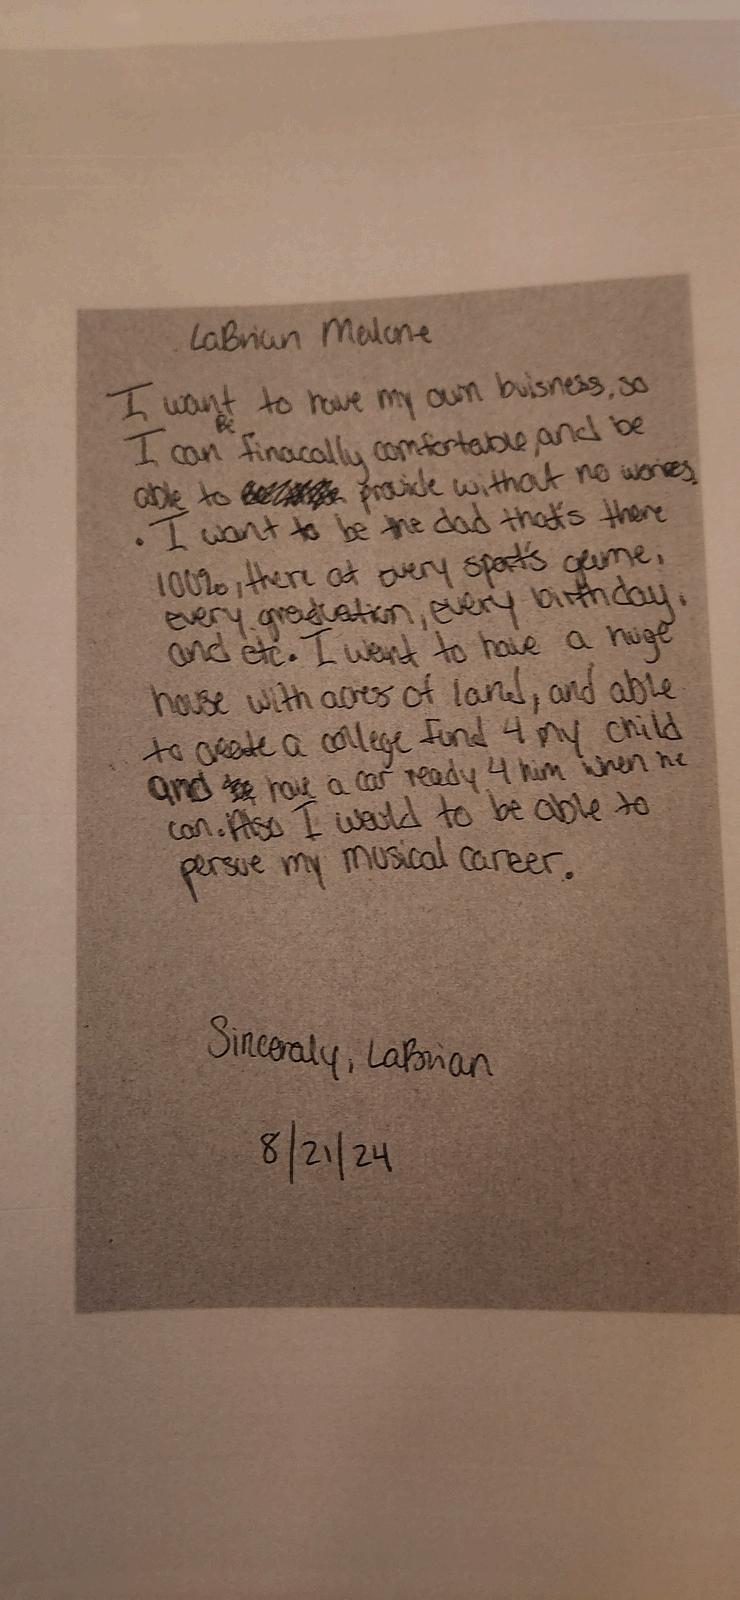 LaBrian Malone
I want to have my own buisness, so
Be
I can finacally comfortable, and be
able to provide without no worries.
. I want to be the dad that's there
100%, there at every sport's game,
every graduation, every birthday,
and etc. I want to have a huge
house with acres of land, and able
to create a college fund 4 my child
and have a car ready 4 him when he
can. Also I would to be able to
persue my musical career.
Sinceraly, LaBrian
8/21/24